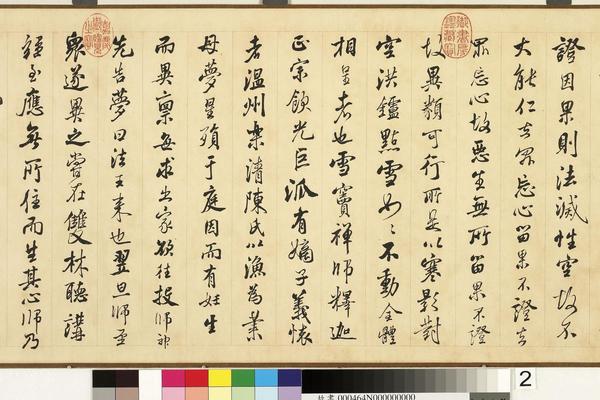 證因果則法滅性空故不
大能仁眾忘心留果不證
眾忘心故惡生無所留果不證
故異類可行所是以寒影對
空洪鑪點雪如〻不動全體
相呈者也雪竇禪師釋迦
正宗飲光巨派有嫡子義懷
者溫州樂清陳氏以漁為業
母夢星殞于庭因而有妊生
而異稟每求出家欲往投師神
先告夢曰法王來也翌旦師至
眾遂異之嘗在雙林聽講
經至應無所住而生其心師乃
2
故書 000464N000000000